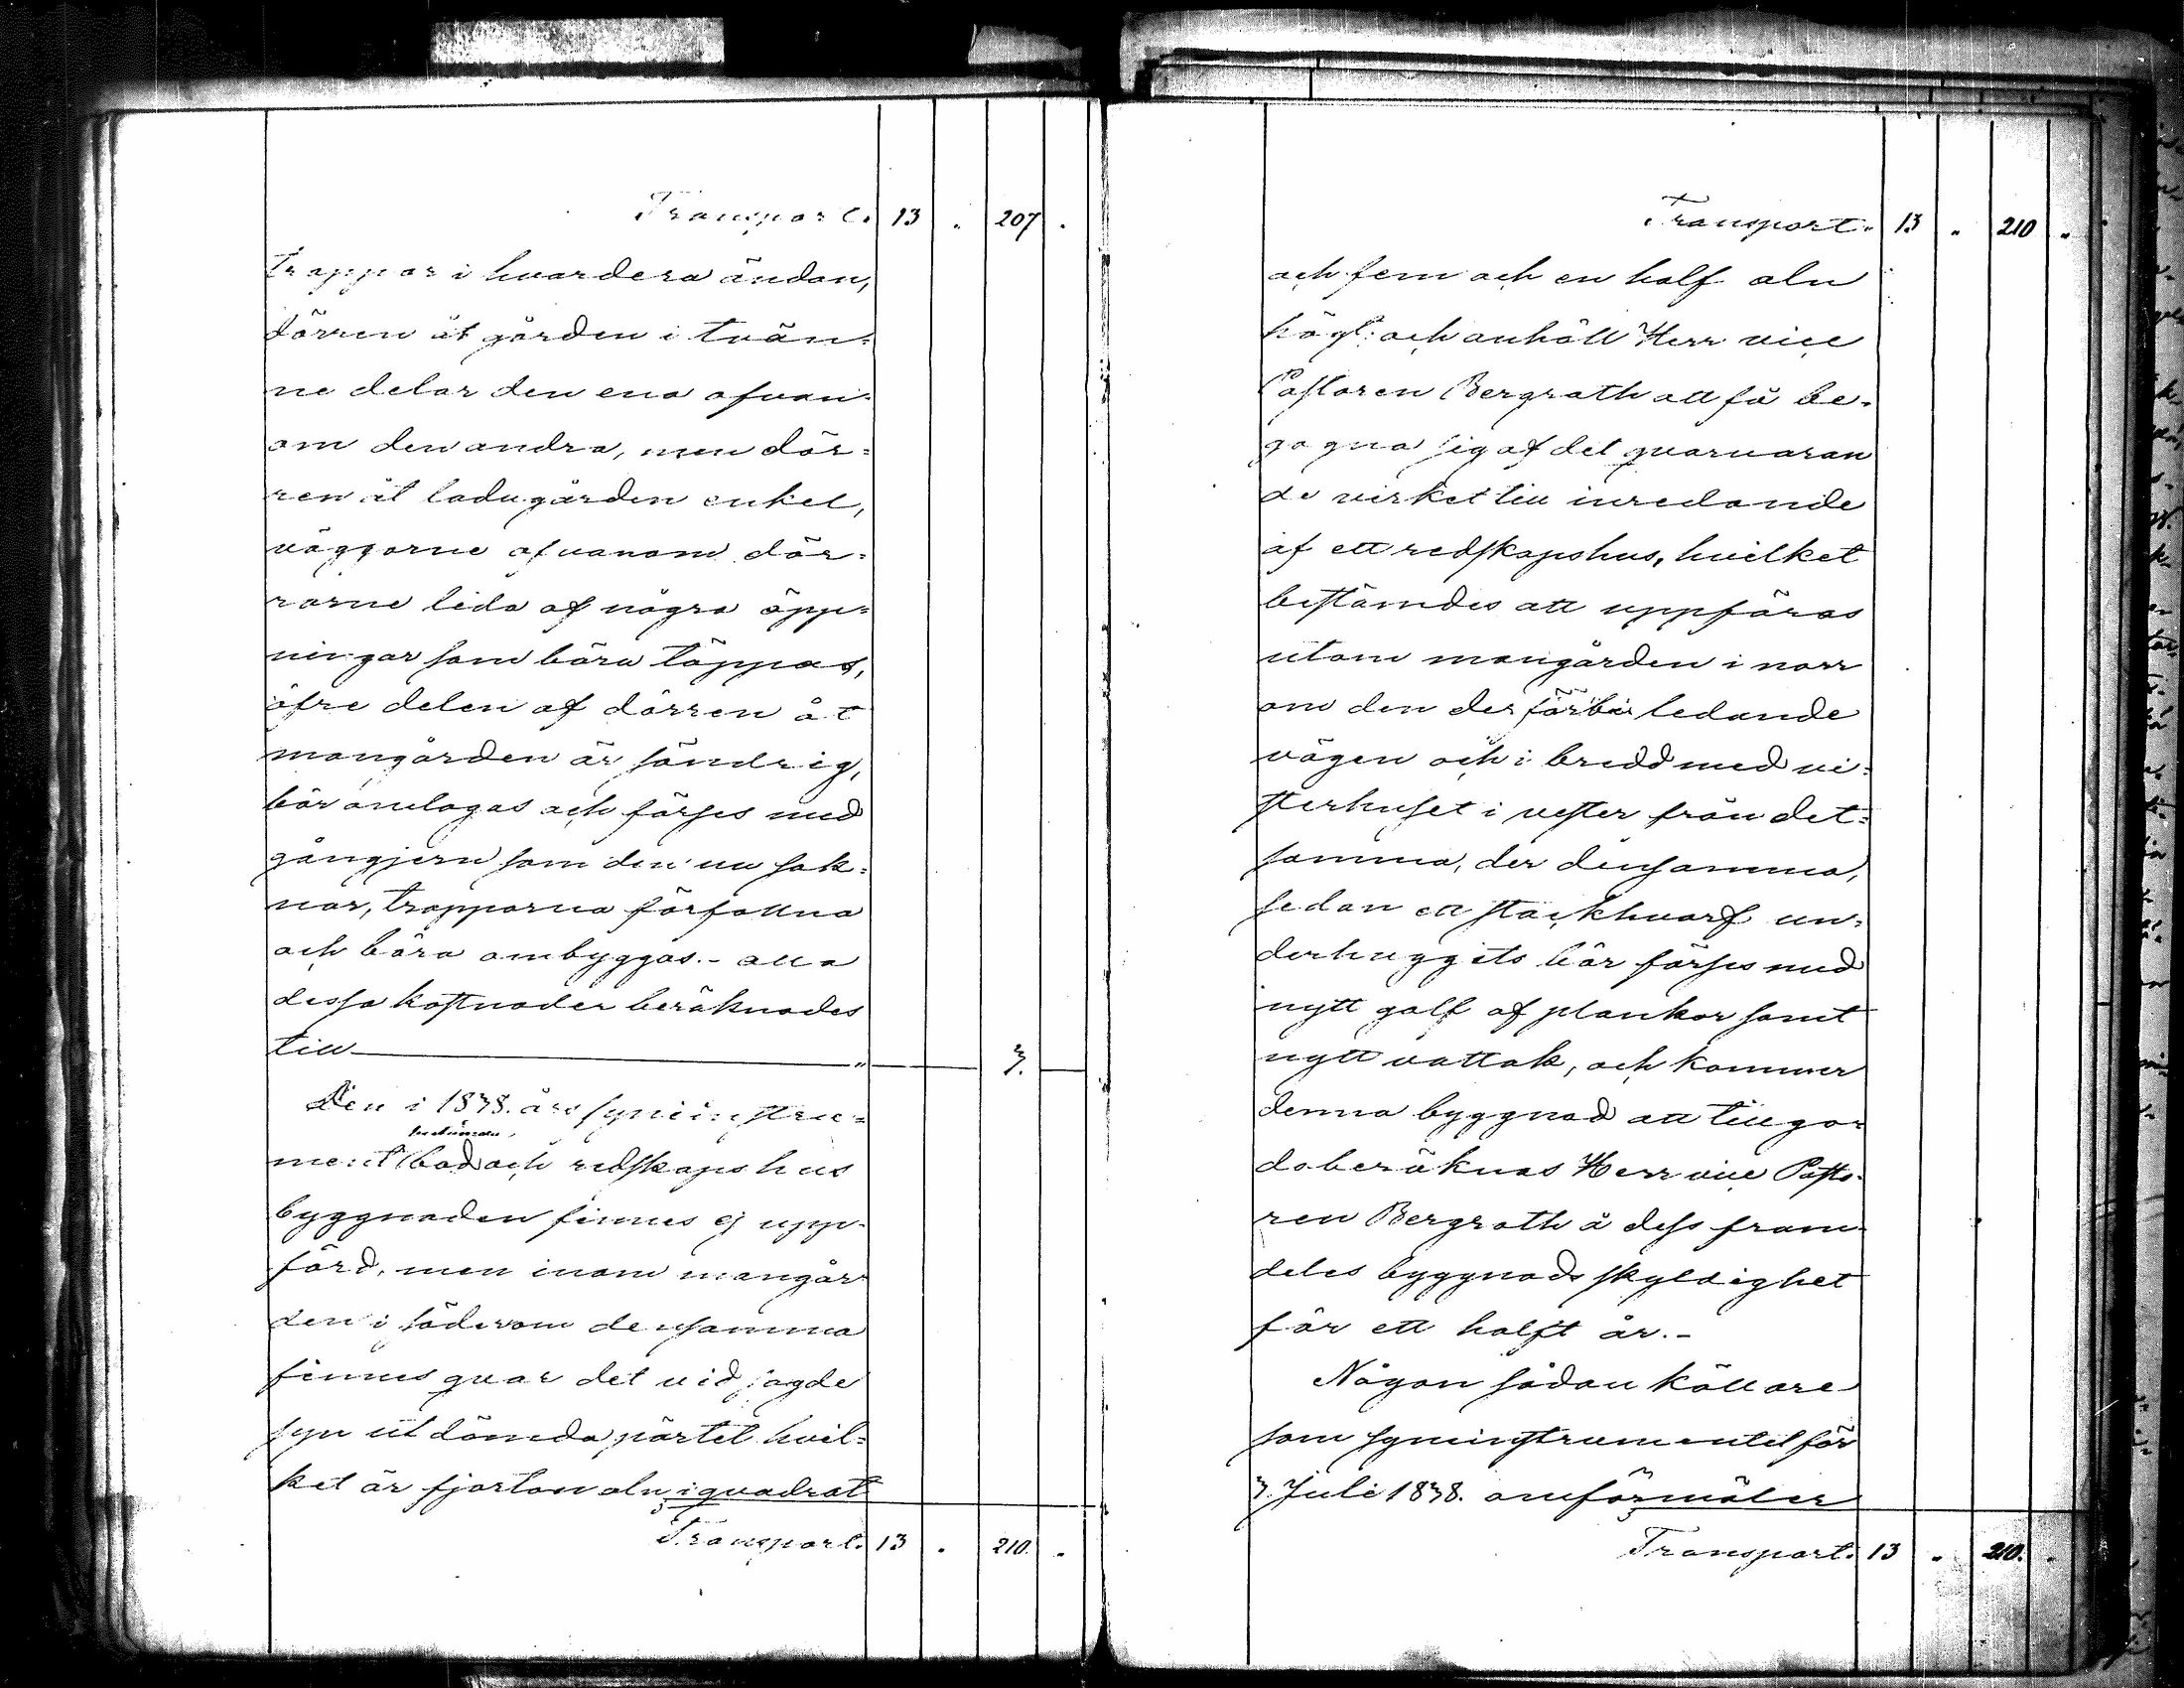 Transport. 13 " 207 "
trappor i hvardera ändan,
dörren åt gården i tvän=
ne delar den ena ofvan=
om den andra, men dör=
ren åt ladugården enkel,
väggarne ofvanom dör=
rarne lida af några öpp=
ningar som böra täppas,
öfre delen af dörren åt
mangården är söndrig,
bör omlagas och förses med
gångjern som den nu sak=
nar, trapporna förfallna
och böra ombyggas. - alla
dessa kostnader beräknades
till " 3.
Den i 1838. års syneinstru=
ment bod och redskapshus
byggnaden finnes ej upp=
förd, men inom mangår
den i söderom densamma
finnes qvar det vid sagde
syn utdömda pörtet hvil=
ket är fjorton aln i quadrat
Transport. 13 " 210. "
Transport. 13 " 210 "
och fem och en half aln
högt: och anhöll Herr vice
Pastoren Bergroth att få be=
gagna sig af det qvarvaran
de virket till inredande
af ett redskapshus, hvilket
bestämdes att uppföras
utom mangården i norr
om den der förbi ledande
vägen och i bredd med vi=
sterhuset i vester från det=
samma, der densamma,
sedan ett stockhvarf un=
derhuggits bör förses med
nytt golf af plankor samt
nytt vattak, och kommer
denna byggnad att tillgo=
do beräknas Herr vice Pasto=
ren Bergroth å dess fram=
deles byggnads skyldighet
för ett halft år. -
Någon sådan källare
som syneinstrumentet för
3 Juli 1838. omförmäler
Transport. 13 " 210. "